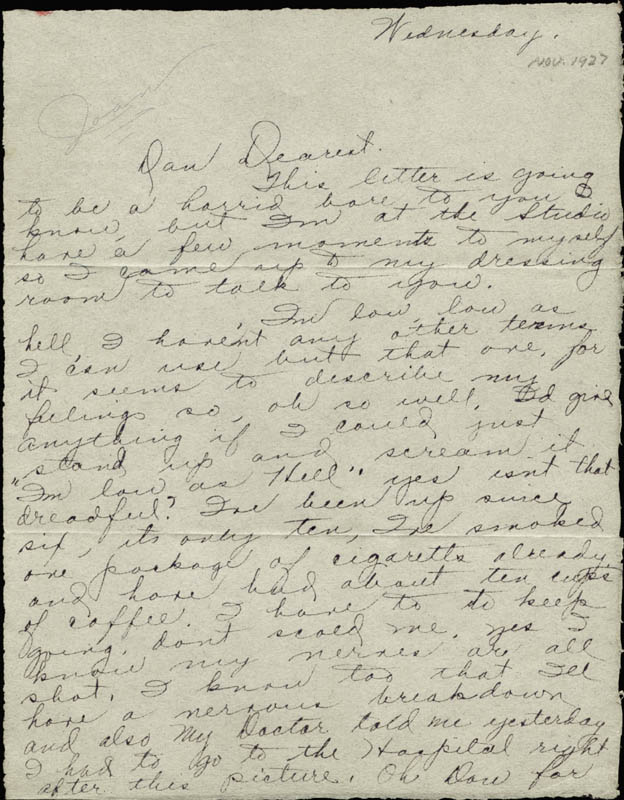 Wednesday.
NOV. 1927
Joan
Dan Dearest.
This letter is going
to be a horrid bore to you I
know, but I'm at the Studio
have a few moments to myself
so I come up to my dressing
room to talk to you.
I'm low, low as
hell I haven't any other terms
I can use but that one, for
it seems to describe my
feelings so, oh so well, I'd give
anything if I could just
stand up and scream it
"I'm low as Hell", yes isn't that
dreadful? I've been up since
six, its only ten, I've smoked
one package of cigaretts already
and have had about ten cups
of coffee. I have to to keep
going, don't scold me, yes I
know my nerves are all
shot, I know too that I'll
have a nervous breakdown
and also my Doctor told me yesterday
I had to go to the Hospital right
after this picture. Oh Dan for